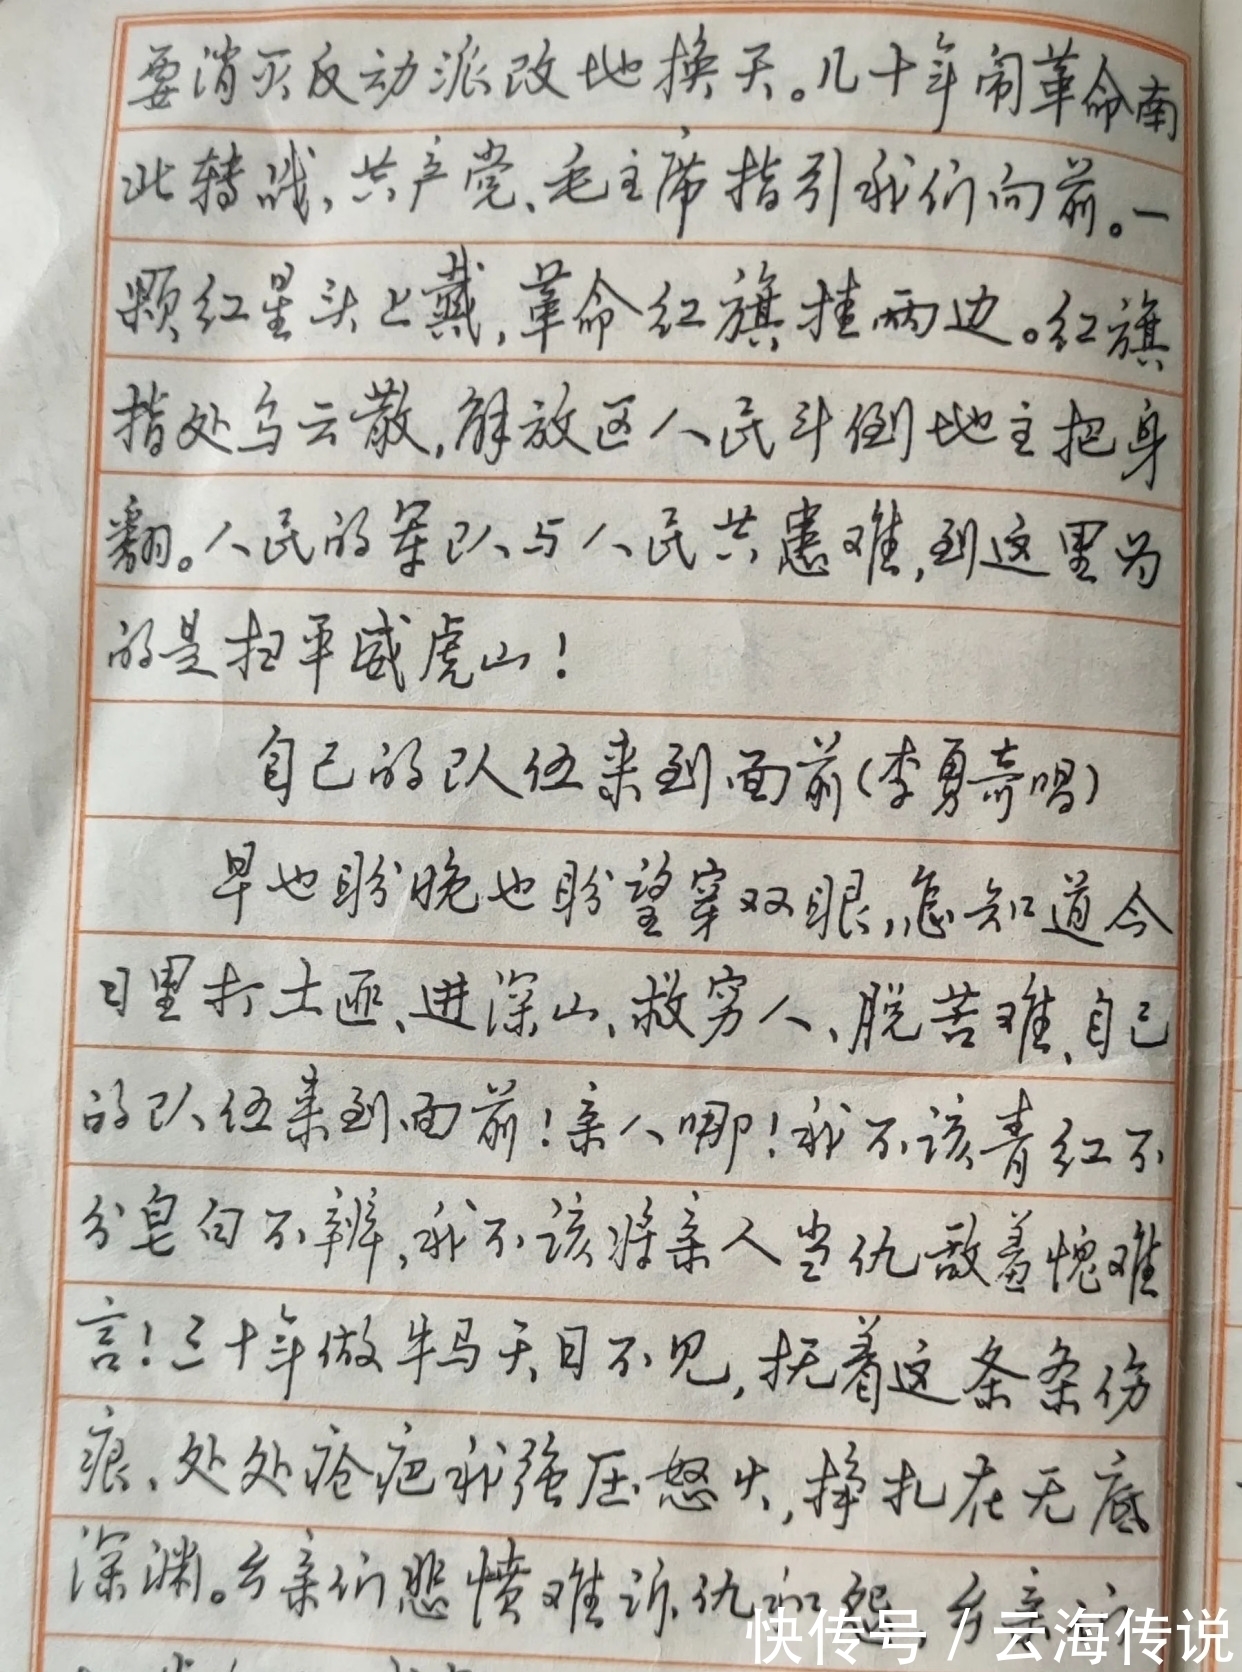 要消灭反动派改地换天。几十年闹革命南
北转战,共产党、毛主席指引我们向前。一
颗红星头上戴,革命红旗挂两边。红旗
指处乌云散,解放区人民斗倒地主把身
翻。人民的军队与人民共患难,到这里为
的是扫平威虎山!
自己的队伍来到面前(李勇奇唱)
早也盼晚也盼望穿双眼,怎知道今
日里打土匪、进深山、救穷人、脱苦难、自己
的队伍来到面前!亲人哪!我不该青红不
分皂白不辨,我不该将亲人当仇敌羞愧难
言!三十年做牛马天日不见,抚着这条条伤
痕、处处疮疤我强压怒火,挣扎在无底
深渊。乡亲们悲愤难诉仇和怨,乡亲们
快传号 / 云海传说